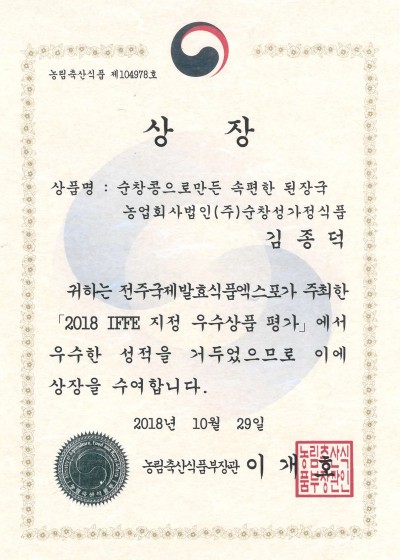 농림축산식품 제104978호
상 장
상품명 : 순창콩으로만든 속편한 된장국
농업회사법인(주)순창성가정식품
김 종 덕
귀하는 전주국제발효식품엑스포가 주최한
「2018 IFFE 지정 우수상품 평가」에서
우수한 성적을 거두었으므로 이에
상장을 수여합니다.
2018년 10월 29일
농림축산식품부장관 이 개 호
농림축산식
품부장관인